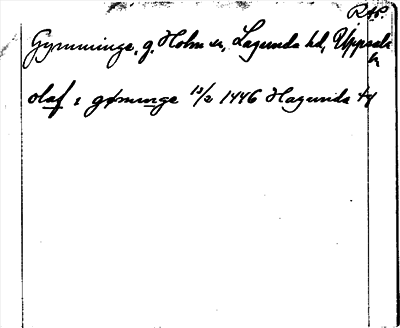 RAP.
Gymminge, g. Holm sn, Lagunda hd, Uppsala
ln
olaf i gømunge 12/2 1446 Hagunda